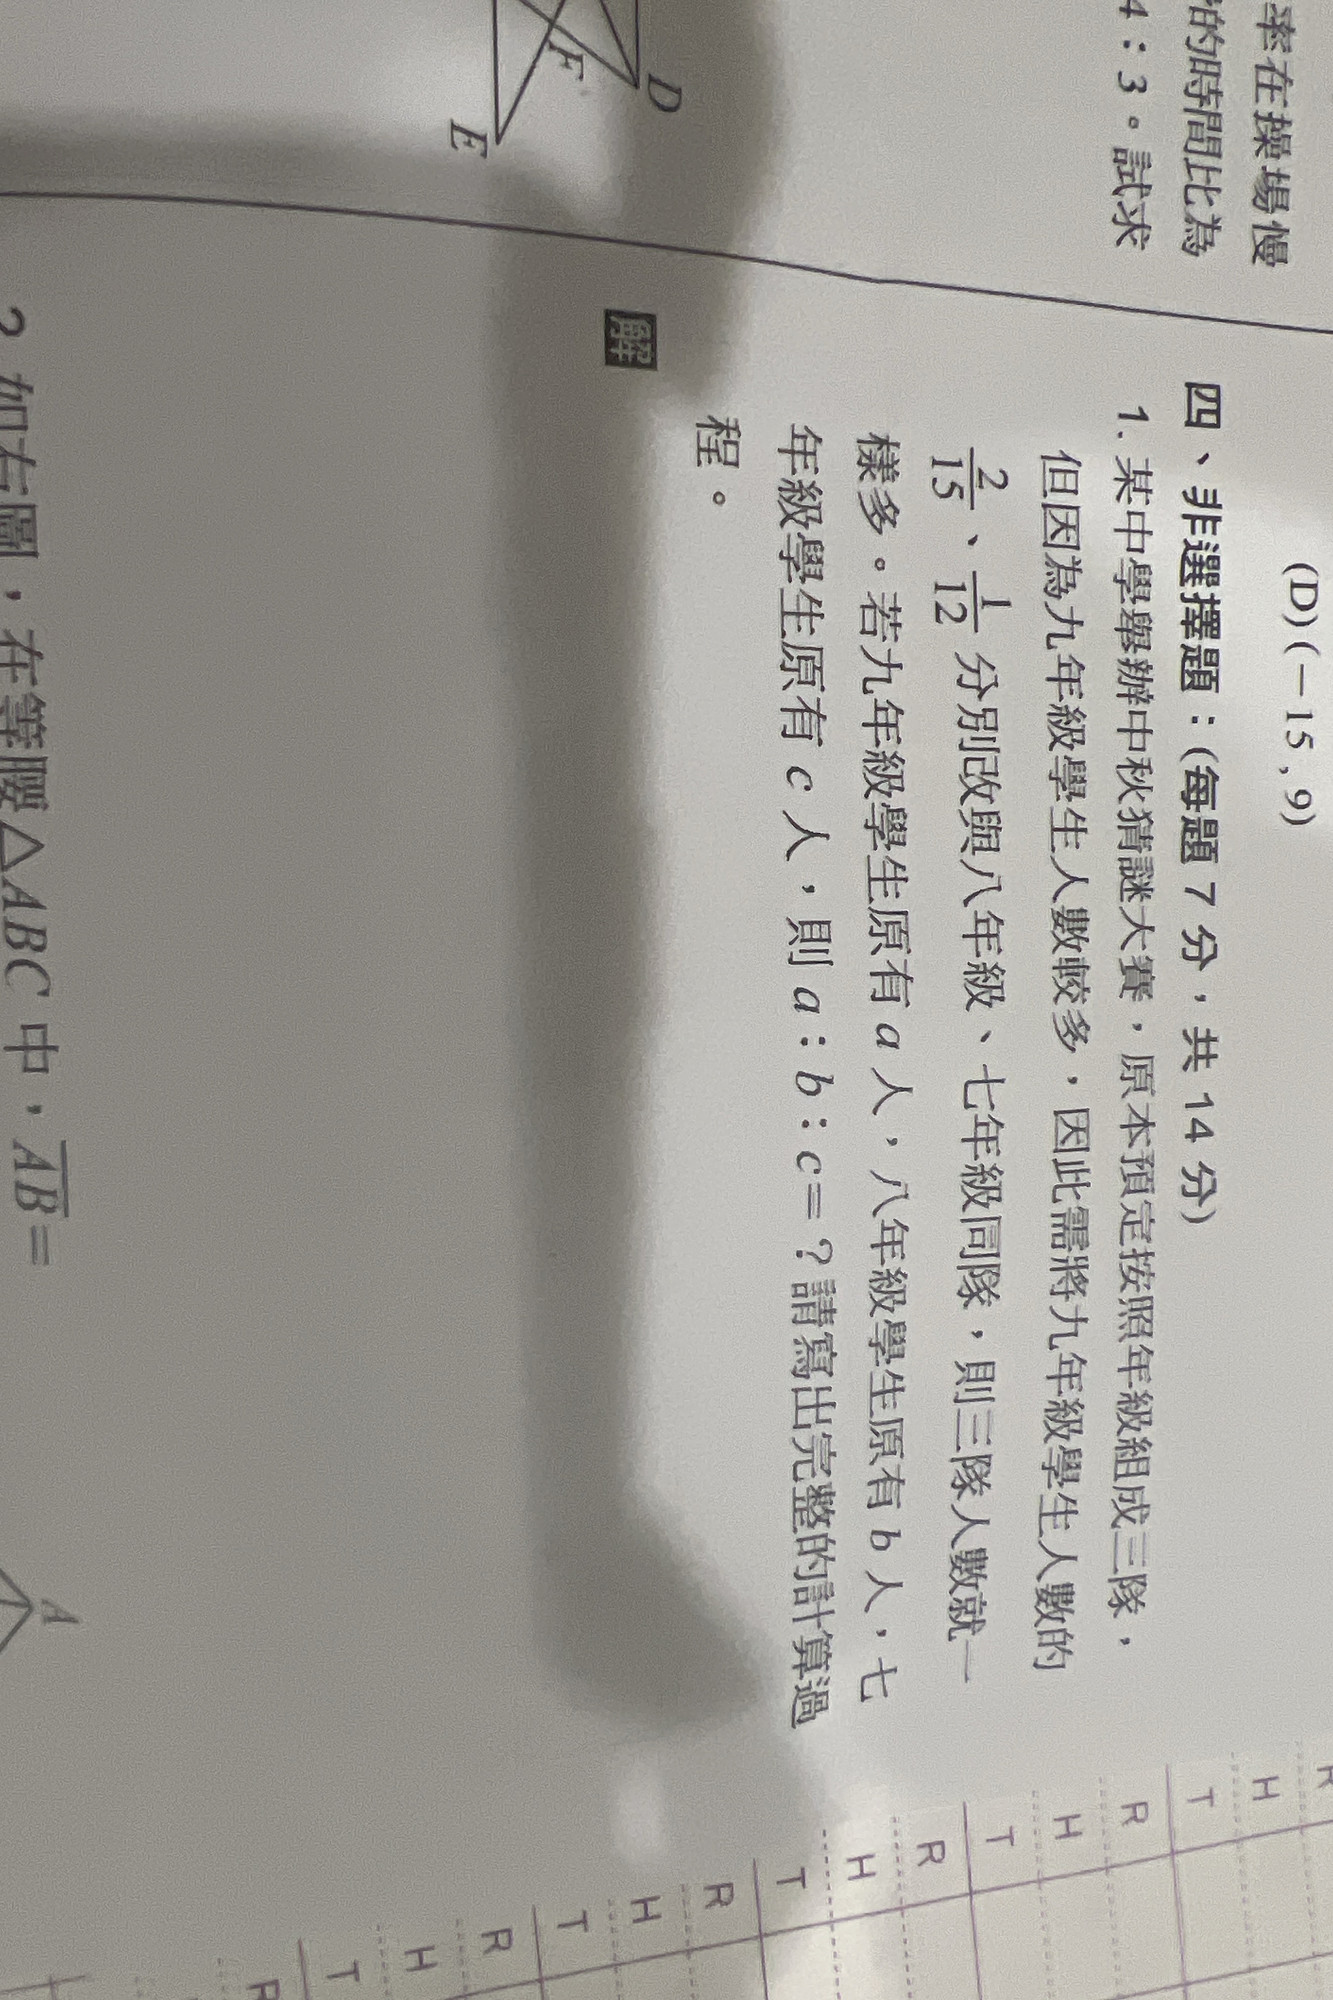 率在操場慢
的時間比為
4：3。試求
D
F
E
(D)(－15 , 9)
四、非選擇題：(每題 7 分，共 14 分)
1. 某中學舉辦中秋猜謎大賽，原本預定按照年級組成三隊，
但因為九年級學生人數較多，因此需將九年級學生人數的
2/15、1/12 分別改與八年級、七年級同隊，則三隊人數就一
樣多。若九年級學生原有 a 人，八年級學生原有 b 人，七
年級學生原有 c 人，則 a：b：c＝？請寫出完整的計算過
程。
解
2. 如右圖，在等腰△ABC 中，AB＝
A
R
H
T
R
H
T
R
H
T
R
H
T
R
H
T
R